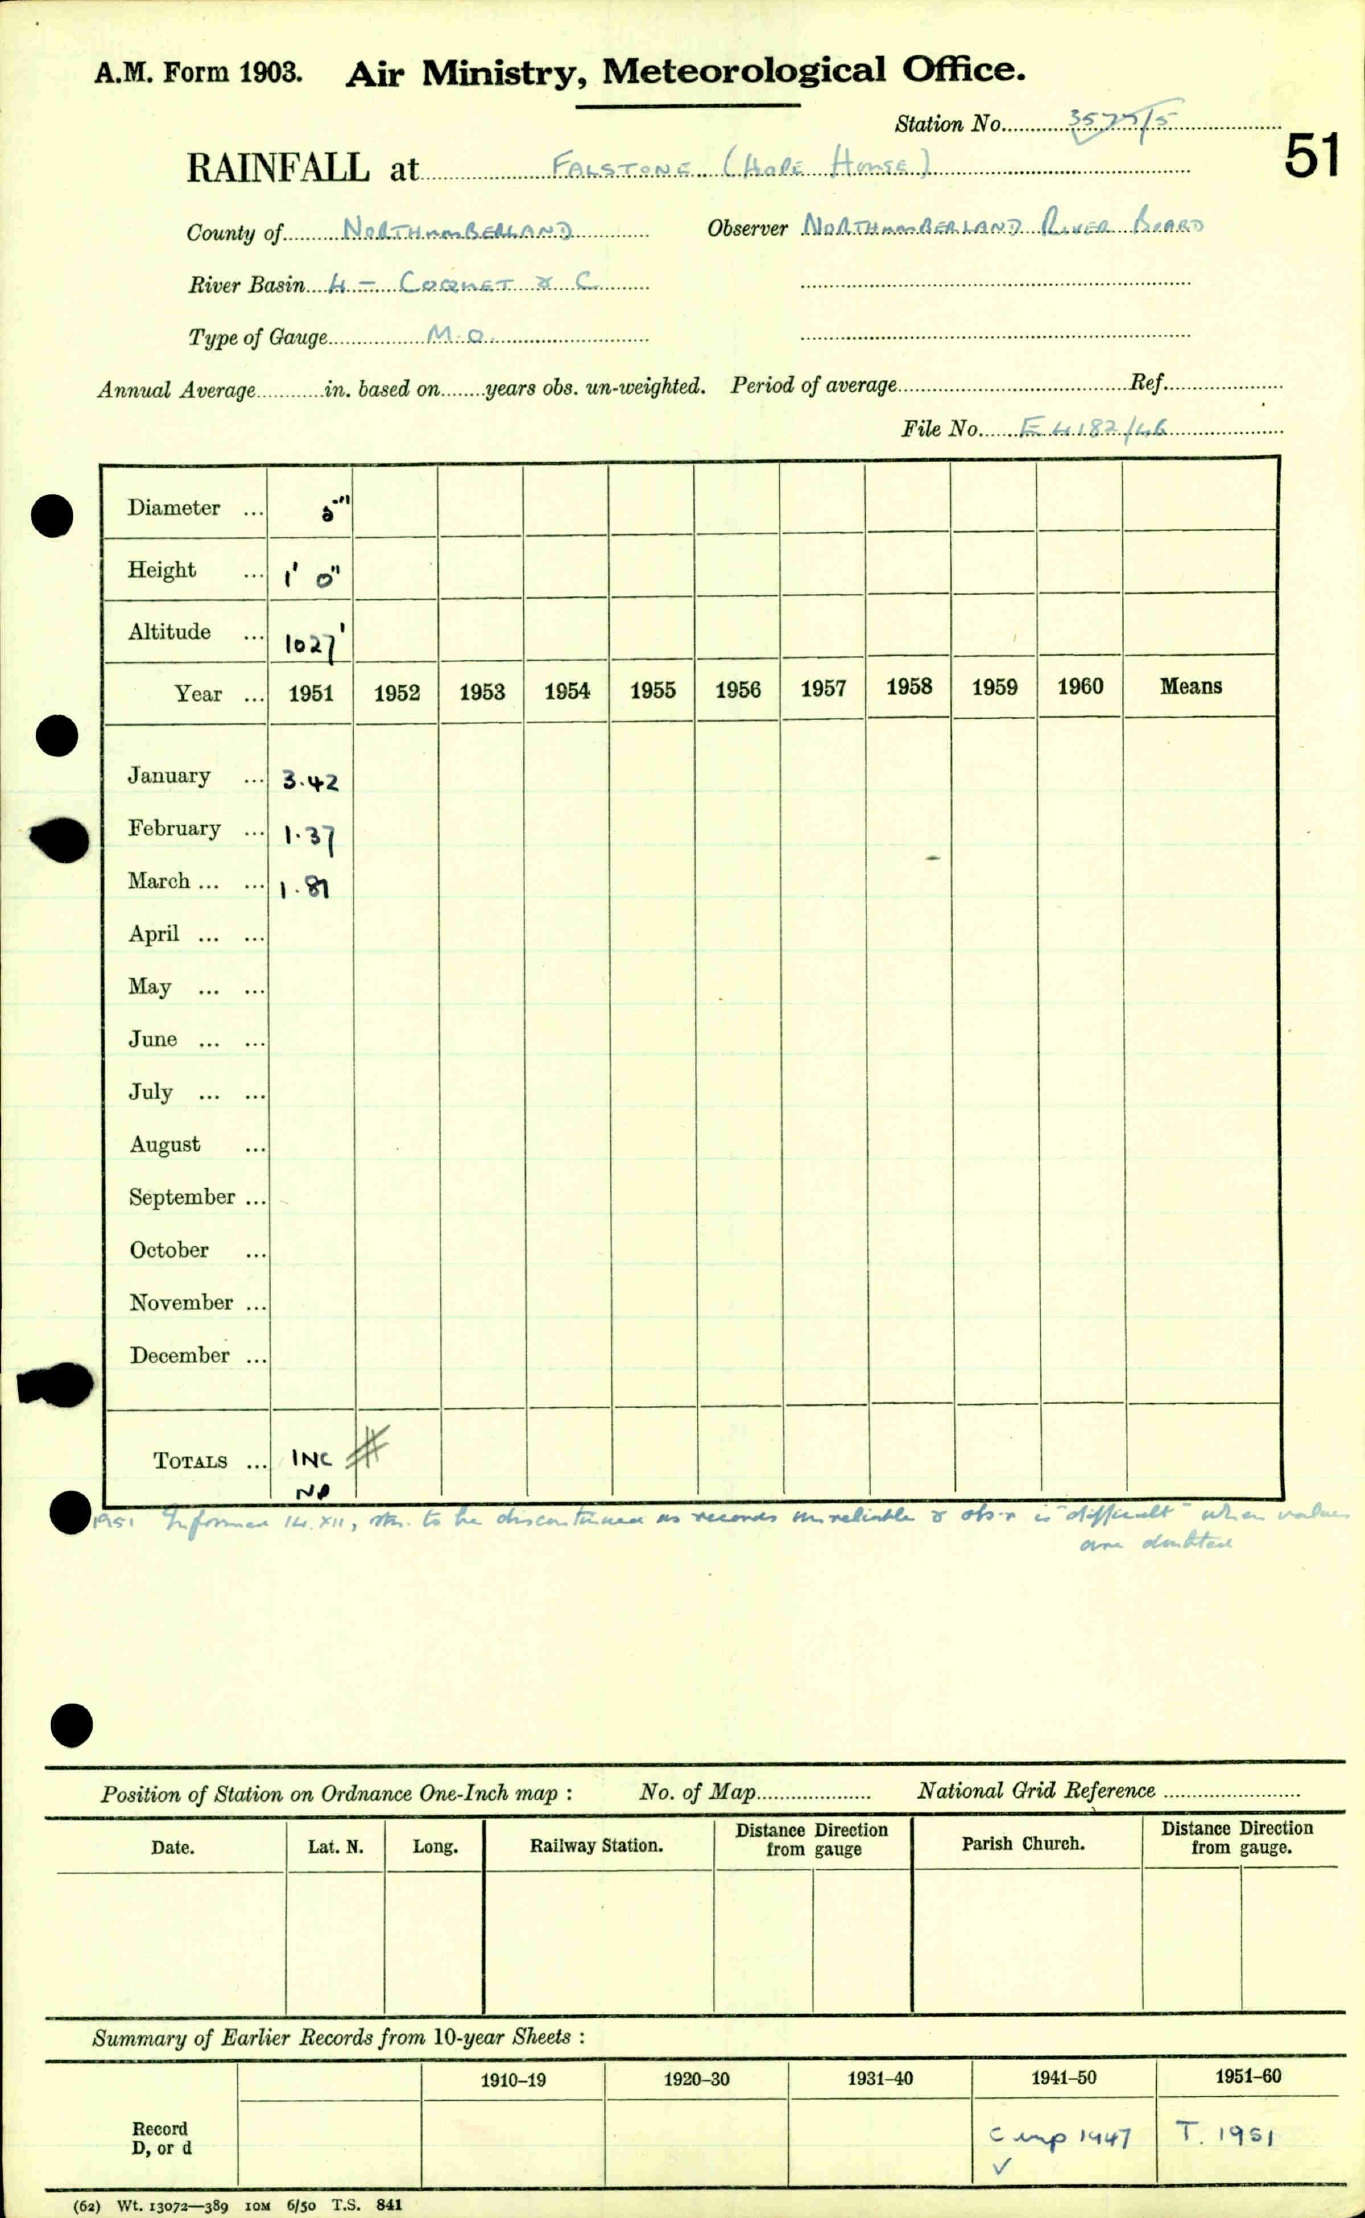 A.M. Form 1903. Air Ministry, Meteorological Office.
Station No. 3575/5
51
RAINFALL at FALSTONE (HOPE HOUSE)
County of NORTHUMBERLAND Observer NORTHUMBERLAND RIVER BOARD
River Basin 4 - COQUET & C
Type of Gauge M.O.
Annual Average in. based on years obs. un-weighted. Period of average Ref.
File No. E4182/46
Diameter ... 5"
Height ... 1' 0"
Altitude ... 1027'
Year ... 1951 1952 1953 1954 1955 1956 1957 1958 1959 1960 Means
January ... 3.42
February ... 1.37
March ... ... 1.81
April ... ...
May ... ...
June ... ...
July ... ...
August ...
September ...
October ...
November ...
December ...
TOTALS ... INC
NP
1951 Informed 14.XII, stn. to be discontinued as records unreliable & obsr is "difficult" when values
are doubted
Position of Station on Ordnance One-Inch map : No. of Map National Grid Reference
Date. Lat. N. Long. Railway Station. Distance Direction from gauge Parish Church. Distance Direction from gauge.
Summary of Earlier Records from 10-year Sheets :
1910-19 1920-30 1931-40 1941-50 1951-60
Record
D, or d
1947 T. 1951
(62) Wt. 13072—389 10M 6/50 T.S. 841